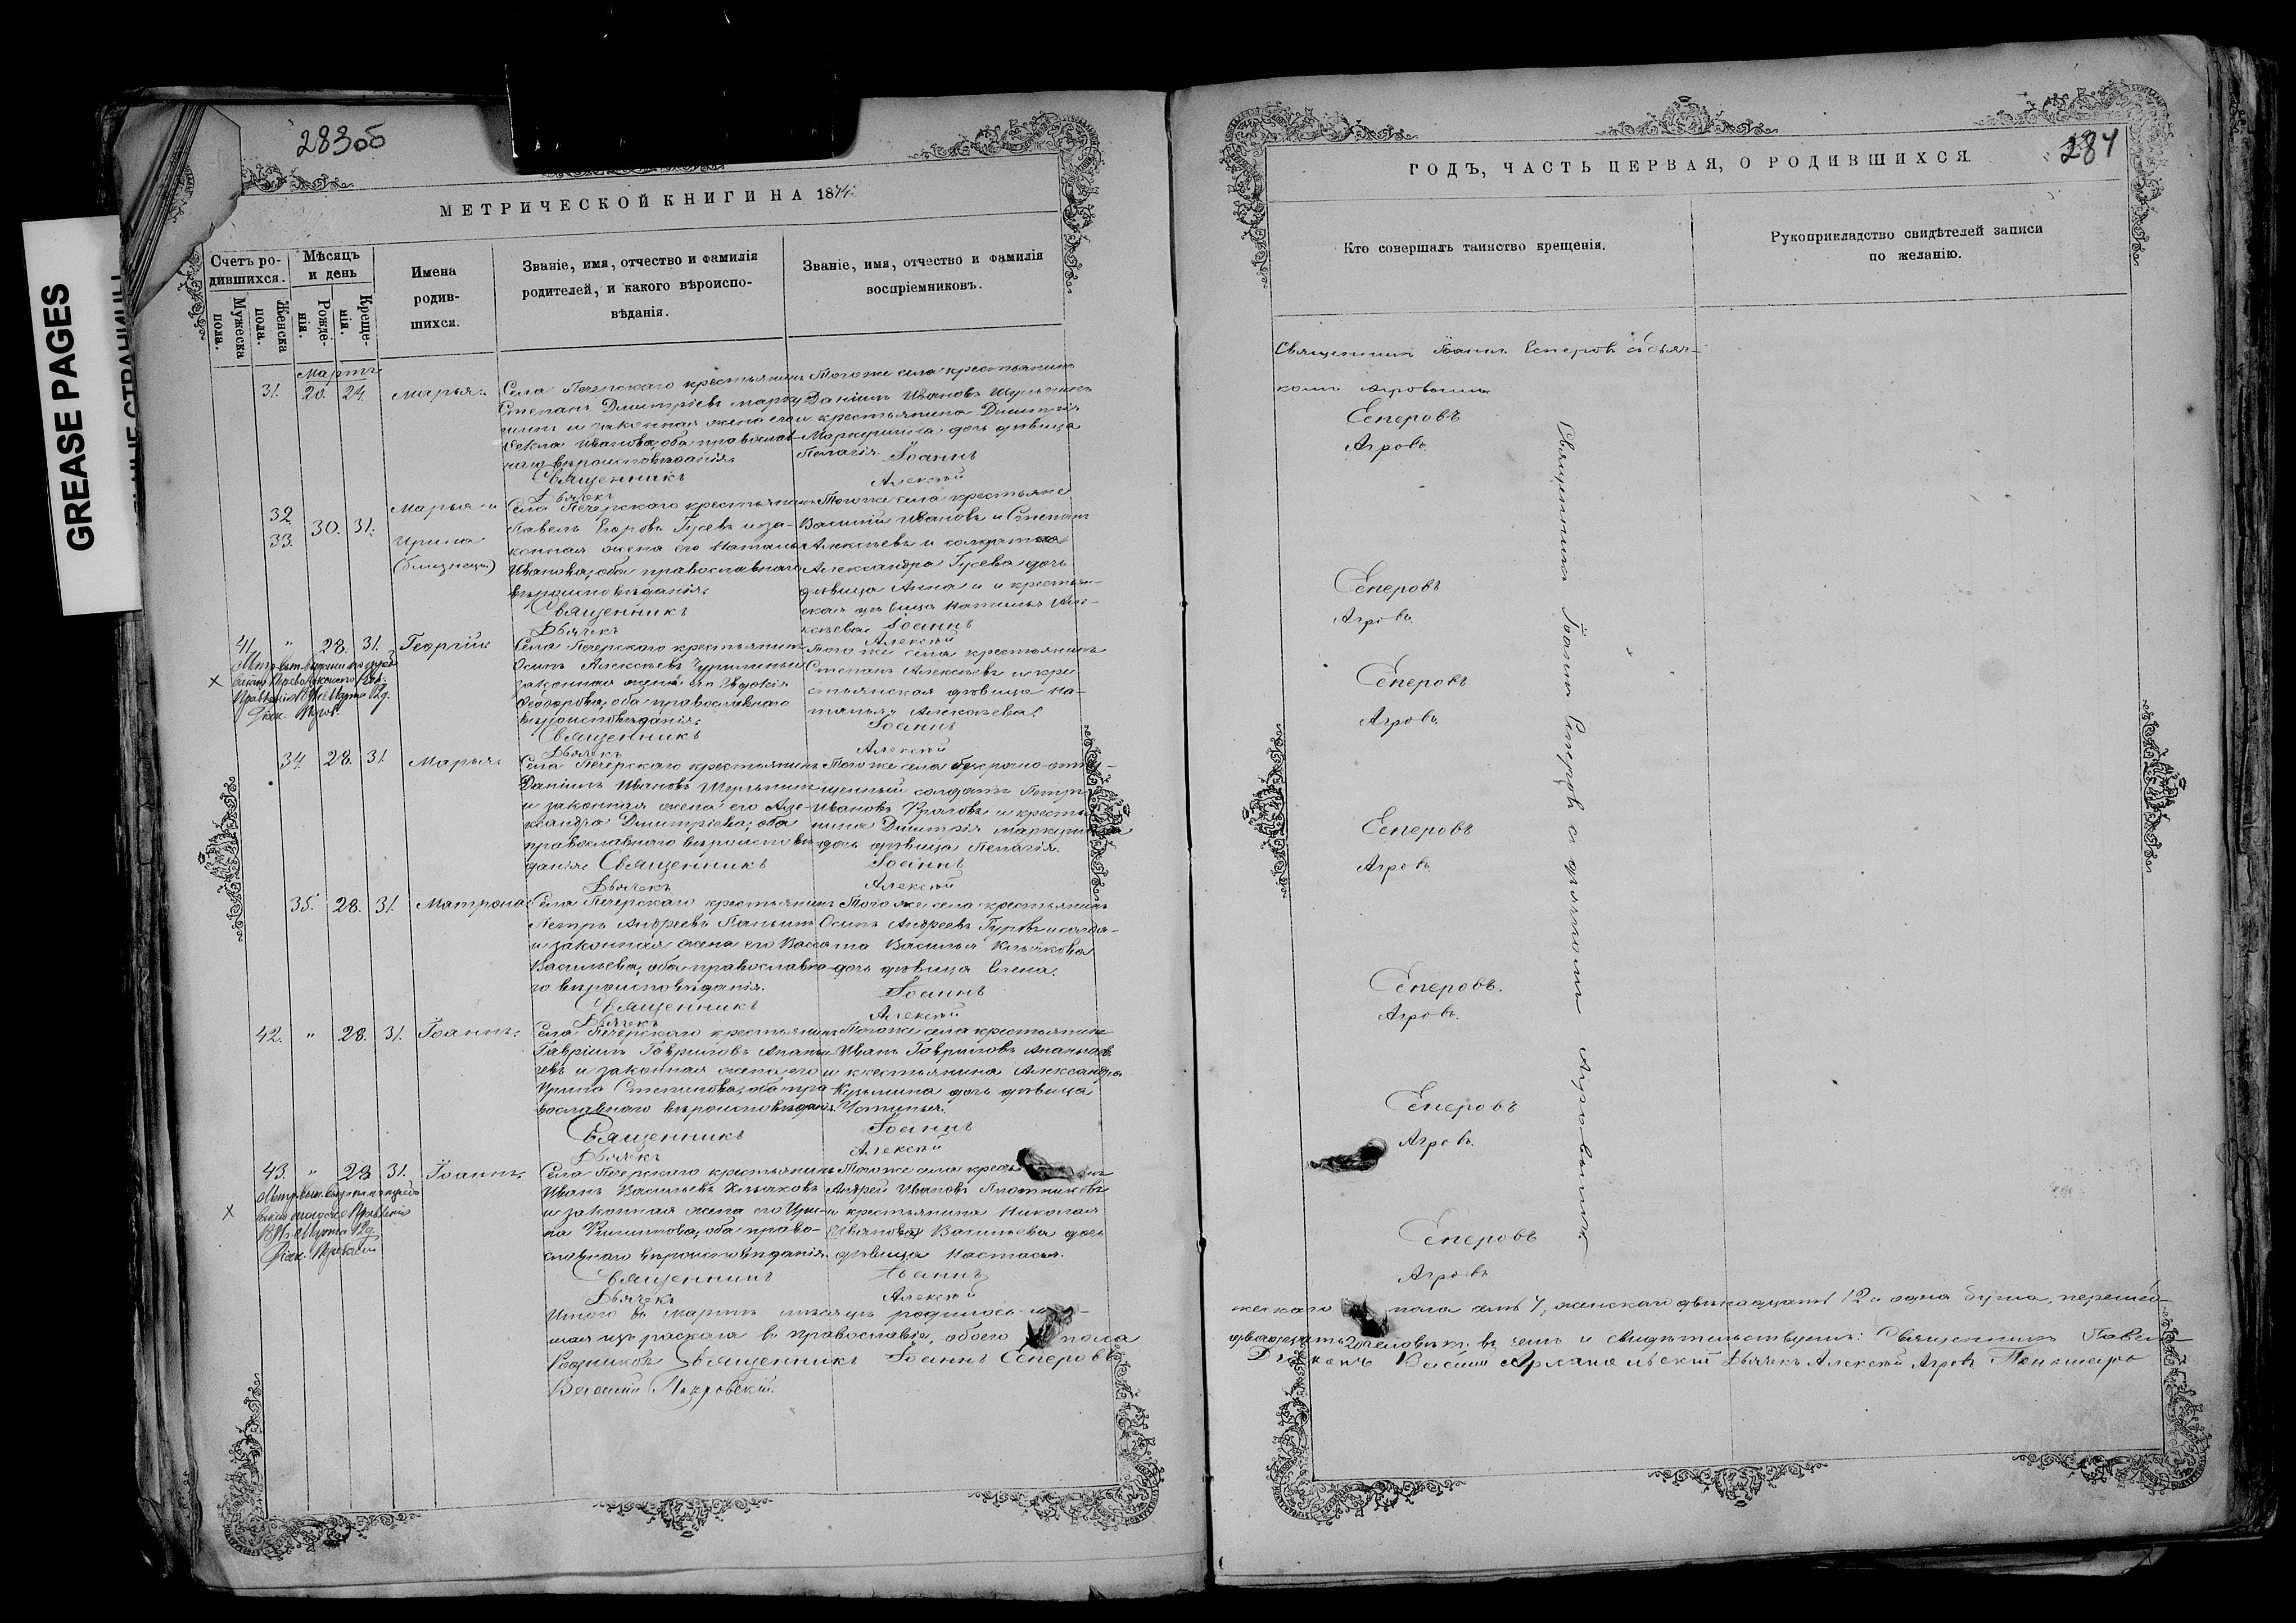 GREASE PAGES
283об
МЕТРИЧЕСКОЙ КНИГИ НА 1874
Счетъ ро-
дившихся.
Мужеска
пола.
Женска
пола.
Мѣсяцъ
и день
Рожде-
нія.
Креще-
нія.
Имена
родив-
шихся.
Званіе, имя, отчество и фамилія
родителей, и какого вѣроиспо-
вѣданія.
Званіе, имя, отчество и фамилія
воспріемниковъ.
Мартъ
31. 20. 24. Марья.
Села Печерскаго крестьянинъ
Степанъ Дмитріевъ Марку-
шинъ и законная жена его
Ѳекла Иванова, оба православ-
наго вѣроисповѣданія.
Тогоже села крестьянинъ
Даніилъ Ивановъ Шульпинъ
и крестьянина Димитрія
Маркушина дочь дѣвица
Пелагія.
Священникъ Іоаннъ
Дьячекъ Алексѣй
32. 33. 30. 31. Марья и
Ирина
(близнецы)
Села Печерскаго крестьянинъ
Павелъ Егоровъ Гусевъ и за-
конная жена его Наталья
Иванова, оба православнаго
вѣроисповѣданія.
Тогоже села крестьяне
Василій Ивановъ и Степанъ
Алексѣевъ и солдатка
Александра Гусева дочь
дѣвица Анна и крестьян-
ская дѣвица Наталья Але-
ксѣева.
Священникъ Іоаннъ
Дьячекъ Алексѣй
41. " 28. 31. Георгій
Села Печерскаго крестьянинъ
Осипъ Алексѣевъ и
законная жена его Евдокія
Ѳеодорова, оба православнаго
вѣроисповѣданія.
Тогоже села крестьянинъ
Степанъ Алексѣевъ и кре-
стьянская дѣвица На-
талья Алексѣева.
Священникъ Іоаннъ
Дьячекъ Алексѣй
34. 28. 31. Марья.
Села Печерскаго крестьянинъ
Даніилъ Ивановъ Шульпинъ
и законная жена его Але-
ксандра Дмитріева, оба
православнаго вѣроисповѣ-
данія.
Тогоже села безсрочно-отпу-
щенный солдатъ Петръ
Ивановъ и кресть-
нина Димитрія Маркушина
дочь дѣвица Пелагія.
Священникъ Іоаннъ
Дьячекъ Алексѣй
35. 28. 31. Матрона
Села Печерскаго крестьянинъ
Петръ Андреевъ Паньшинъ
и законная жена его Васса
Васильева, оба православна-
го вѣроисповѣданія.
Тогоже села крестьянинъ
Осипъ Андреевъ Гуровъ и солда-
та Василья Клычкова
дочь дѣвица Елена.
Священникъ Іоаннъ
Дьячекъ Алексѣй
42. " 28. 31. Іоаннъ.
Села Печерскаго крестьянинъ
Гавріилъ Гавриловъ
и законная жена его
Ирина Степанова, оба пра-
вославнаго вѣроисповѣданія.
Тогоже села крестьянинъ
Иванъ Гавриловъ
и крестьянина Александра
Кузьмина дочь дѣвица
Устинья.
Священникъ Іоаннъ
Дьячекъ Алексѣй
43. " 28 31. Іоаннъ.
Села Печерскаго крестьянинъ
Иванъ Васильевъ Клычковъ
и законная жена его Ири-
на Филиппова, оба право-
славнаго вѣроисповѣданія.
Тогоже села
Андрей Ивановъ Плотниковъ
и крестьянина Николая
Васильева дочь
дѣвица Настасья.
Священникъ Іоаннъ
Дьячекъ Алексѣй
Итого въ Мартѣ мѣсяцѣ родилось
изъ раскола въ православіе, обоего пола
Священникъ Іоаннъ Есперовъ
Василій Покровскій.
284
ГОДЪ, ЧАСТЬ ПЕРВАЯ, О РОДИВШИХСЯ.
Кто совершалъ таинство крещенія.
Рукоприкладство свидѣтелей записи
по желанію.
Священникъ Іоаннъ Есперовъ съ дьяч-
комъ Агровымъ
Есперовъ
Агровъ
Есперовъ
Агровъ
Есперовъ
Агровъ
Есперовъ
Агровъ
Есперовъ.
Агровъ.
Есперовъ
Агровъ.
Есперовъ
Агровъ
Священникъ Іоаннъ Есперовъ съ дьячкомъ Агровымъ.
пола семь 7, женскаго двѣнадцать 12 и одна перешед-
двадцать 20 человѣкъ, въ чемъ и свидѣтельствуемъ: Священникъ Павелъ
Дьяконъ Дьячекъ Алексѣй Агровъ